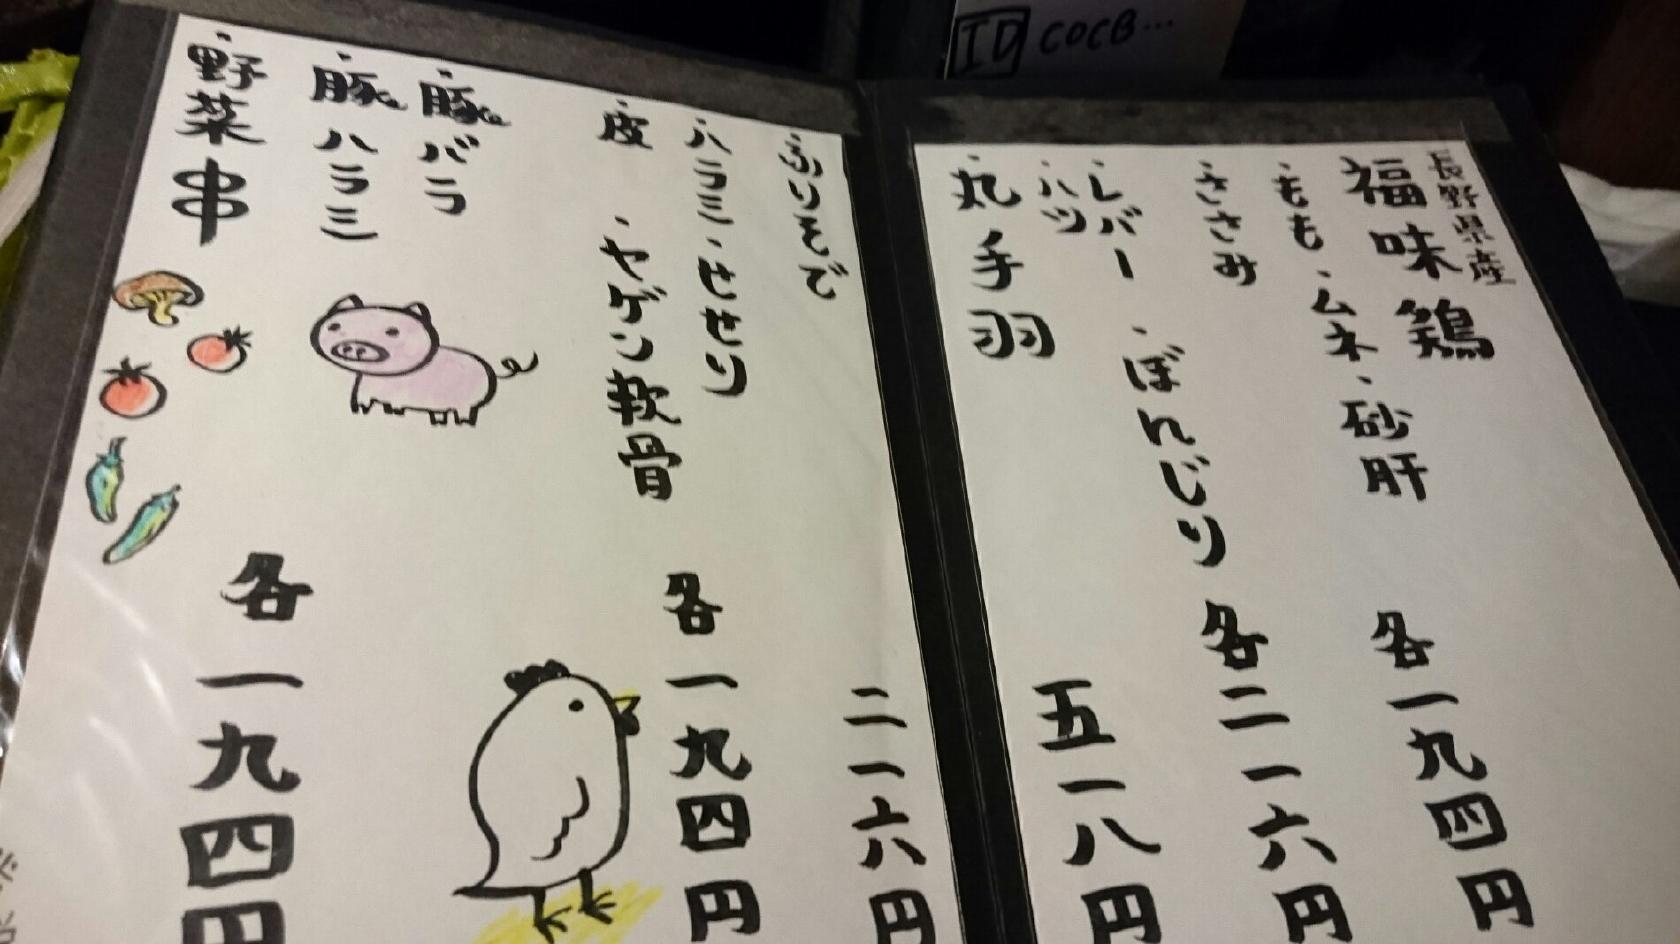 ID COCB…
長野県産
福味鶏
・もも・ムネ・砂肝 各一九四円
・ささみ
・レバー・ぼんじり 各二一六円
・ハツ
・丸手羽 五一八円
・ふりそで 二一六円
・ハラミ・せせり
・皮・ヤゲン軟骨 各一九四円
・豚バラ
・豚ハラミ
・野菜串 各一九四円